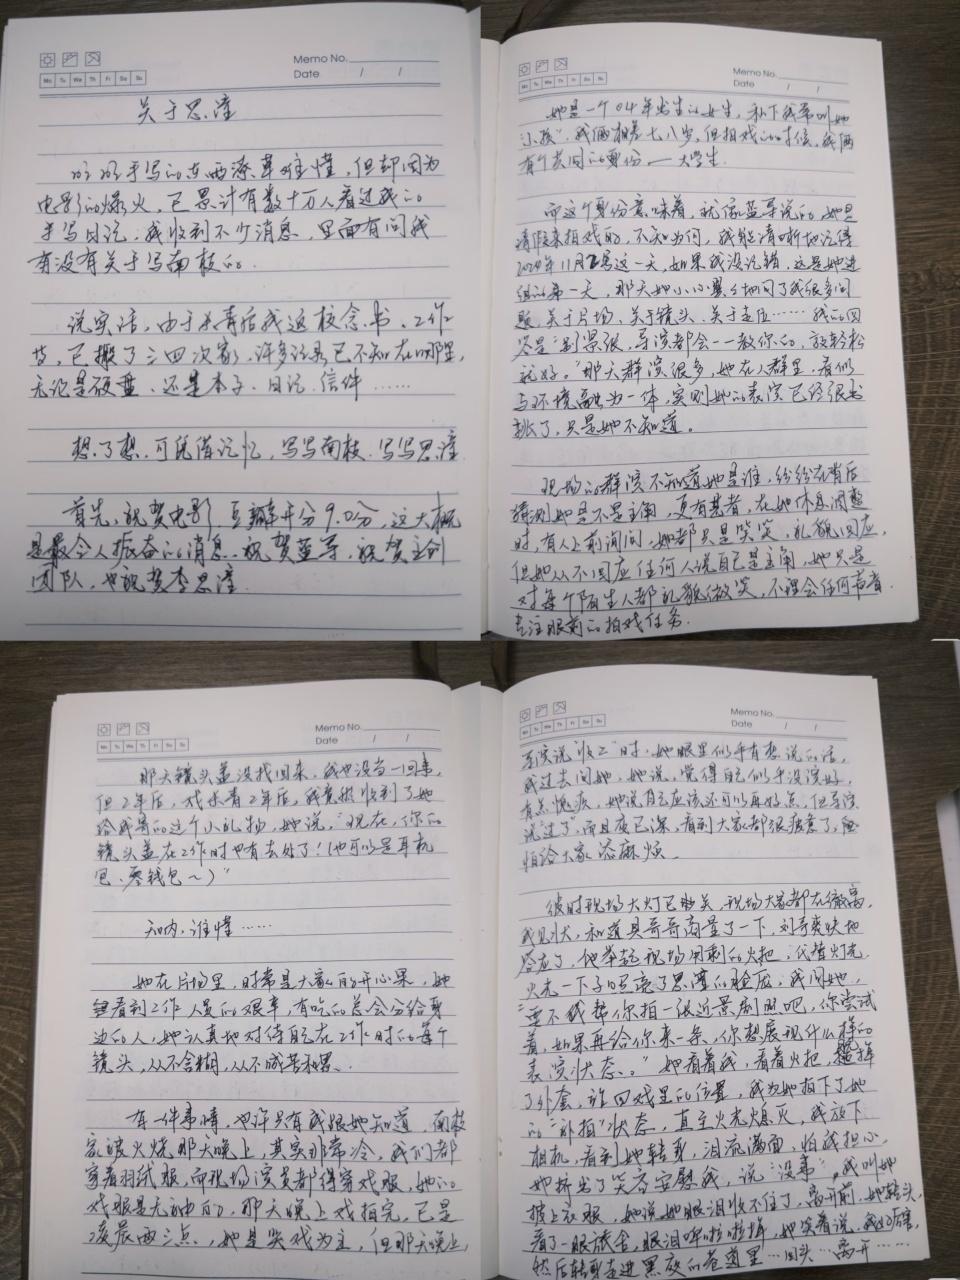 Memo No.
Date / /
Mo Tu We Th Fr Sa Su
关于思潼
的的手写的东西潦草难懂，但却因为
电影的爆火，已累计有数十万人看过我的
手写日记，我收到不少消息，里面有问我
有没有关于写南枝的.
说实话，由于杀青后我返校念书、工作
等，已搬了三四次家，许多记录已不知在哪里，
无论是硬盘、还是本子、日记、信件……
想了想，可凭借记忆，写写南枝，写写思潼.
首先，祝贺电影豆瓣开分9.0分，这大概
是最令人振奋的消息，祝贺蓝导，祝贺主创
团队，也祝贺李思潼.
Memo No.
Date / /
Mo Tu We Th Fr Sa Su
她是一个04年出生的女生，私下我常叫她
"小孩"，我俩相差七八岁，但拍戏的时候，我俩
有个共同的身份——大学生.
而这个身份意味着，就像蓝导说的，她是
请假来拍戏的，不知为何，我能清晰地记得
2024年11月2号这一天，如果我没记错，这是她进
组的第一天，那天她小心翼翼地问了我很多问
题，关于片场、关于镜头、关于走位……我的回
答是"别紧张，导演都会一一教你的，放轻松
就好。"那天群演很多，她在人群里，看似
与环境融为一体，实则她的表演已经很出
挑了，只是她不知道。
现场的群演不知道她是谁，纷纷在背后
猜测她是不是主角，更有甚者，在她休息调整
时，有人上前询问，她都只是笑笑，礼貌回应，
但她从不回应任何人说自己是主角，她只是
对每个陌生人都礼貌微笑，不理会任何声音
专注眼前的拍戏任务.
Memo No.
Date / /
Mo Tu We Th Fr Sa Su
那天镜头盖没找回来，我也没当一回事，
但2年后，戏杀青2年后，我竟然收到了她
给我寄的这个小礼物，她说，"现在，你的
镜头盖在工作时也有去处了！（也可以是耳机
包、零钱包~）"
家人们，谁懂……
她在片场里，时常是大家的开心果，她
会看到工作人员的艰辛，有吃的总会分给身
边的人，她认真地对待自己在工作时的每个
镜头，从不含糊，从不喊苦和累.
有一件事情，也许只有我跟她知道，南枝
家被火烧那天晚上，其实非常冷，我们都
穿着羽绒服，而现场演员都得穿戏服，她的
戏服是无袖的，那天晚上戏拍完，已是
凌晨两三点，她是哭戏为主，但那天晚上，
Memo No.
Date / /
Mo Tu We Th Fr Sa Su
导演说"收工"时，她眼里似乎有想说的话，
我过去问她，她说，觉得自己似乎没演好，
有点愧疚，她说自己应该还可以再好点，但导演
说"过了"，而且夜已深，看到大家都很疲惫了，
怕给大家添麻烦.
彼时现场大灯已关，现场大家都在撤离，
我见状，和道具哥哥商量了一下，刘哥爽快地
答应了，他举起现场用剩的火把，代替灯光，
火光一下子照亮了思潼的脸庞，我问她，
"要不我帮你拍一张近景剧照吧，你尝试
着，如果再给你来一条，你想展现什么样的
表演状态。"她看着我，看着火把，脱掉
了外套，站回戏里的位置，我为她拍下了她
的"补拍"状态，直至火光熄灭，我放下
相机，看到她转身，泪流满面，怕我担心，
她挤出了笑容安慰我，说"没事"，我叫她
披上衣服，她说她眼泪收不住了，离开前，她转头
看了一眼旅舍，眼泪哗啦啦掉，她笑着说，
然后转身走进黑夜的巷道里……回头……离开……